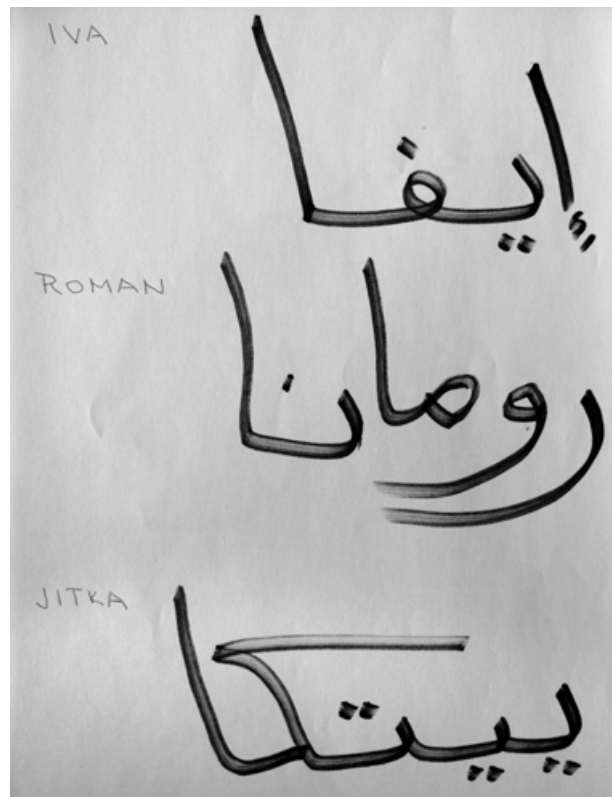 IVA
إيفا
ROMAN
رومانا
JITKA
ييتكا